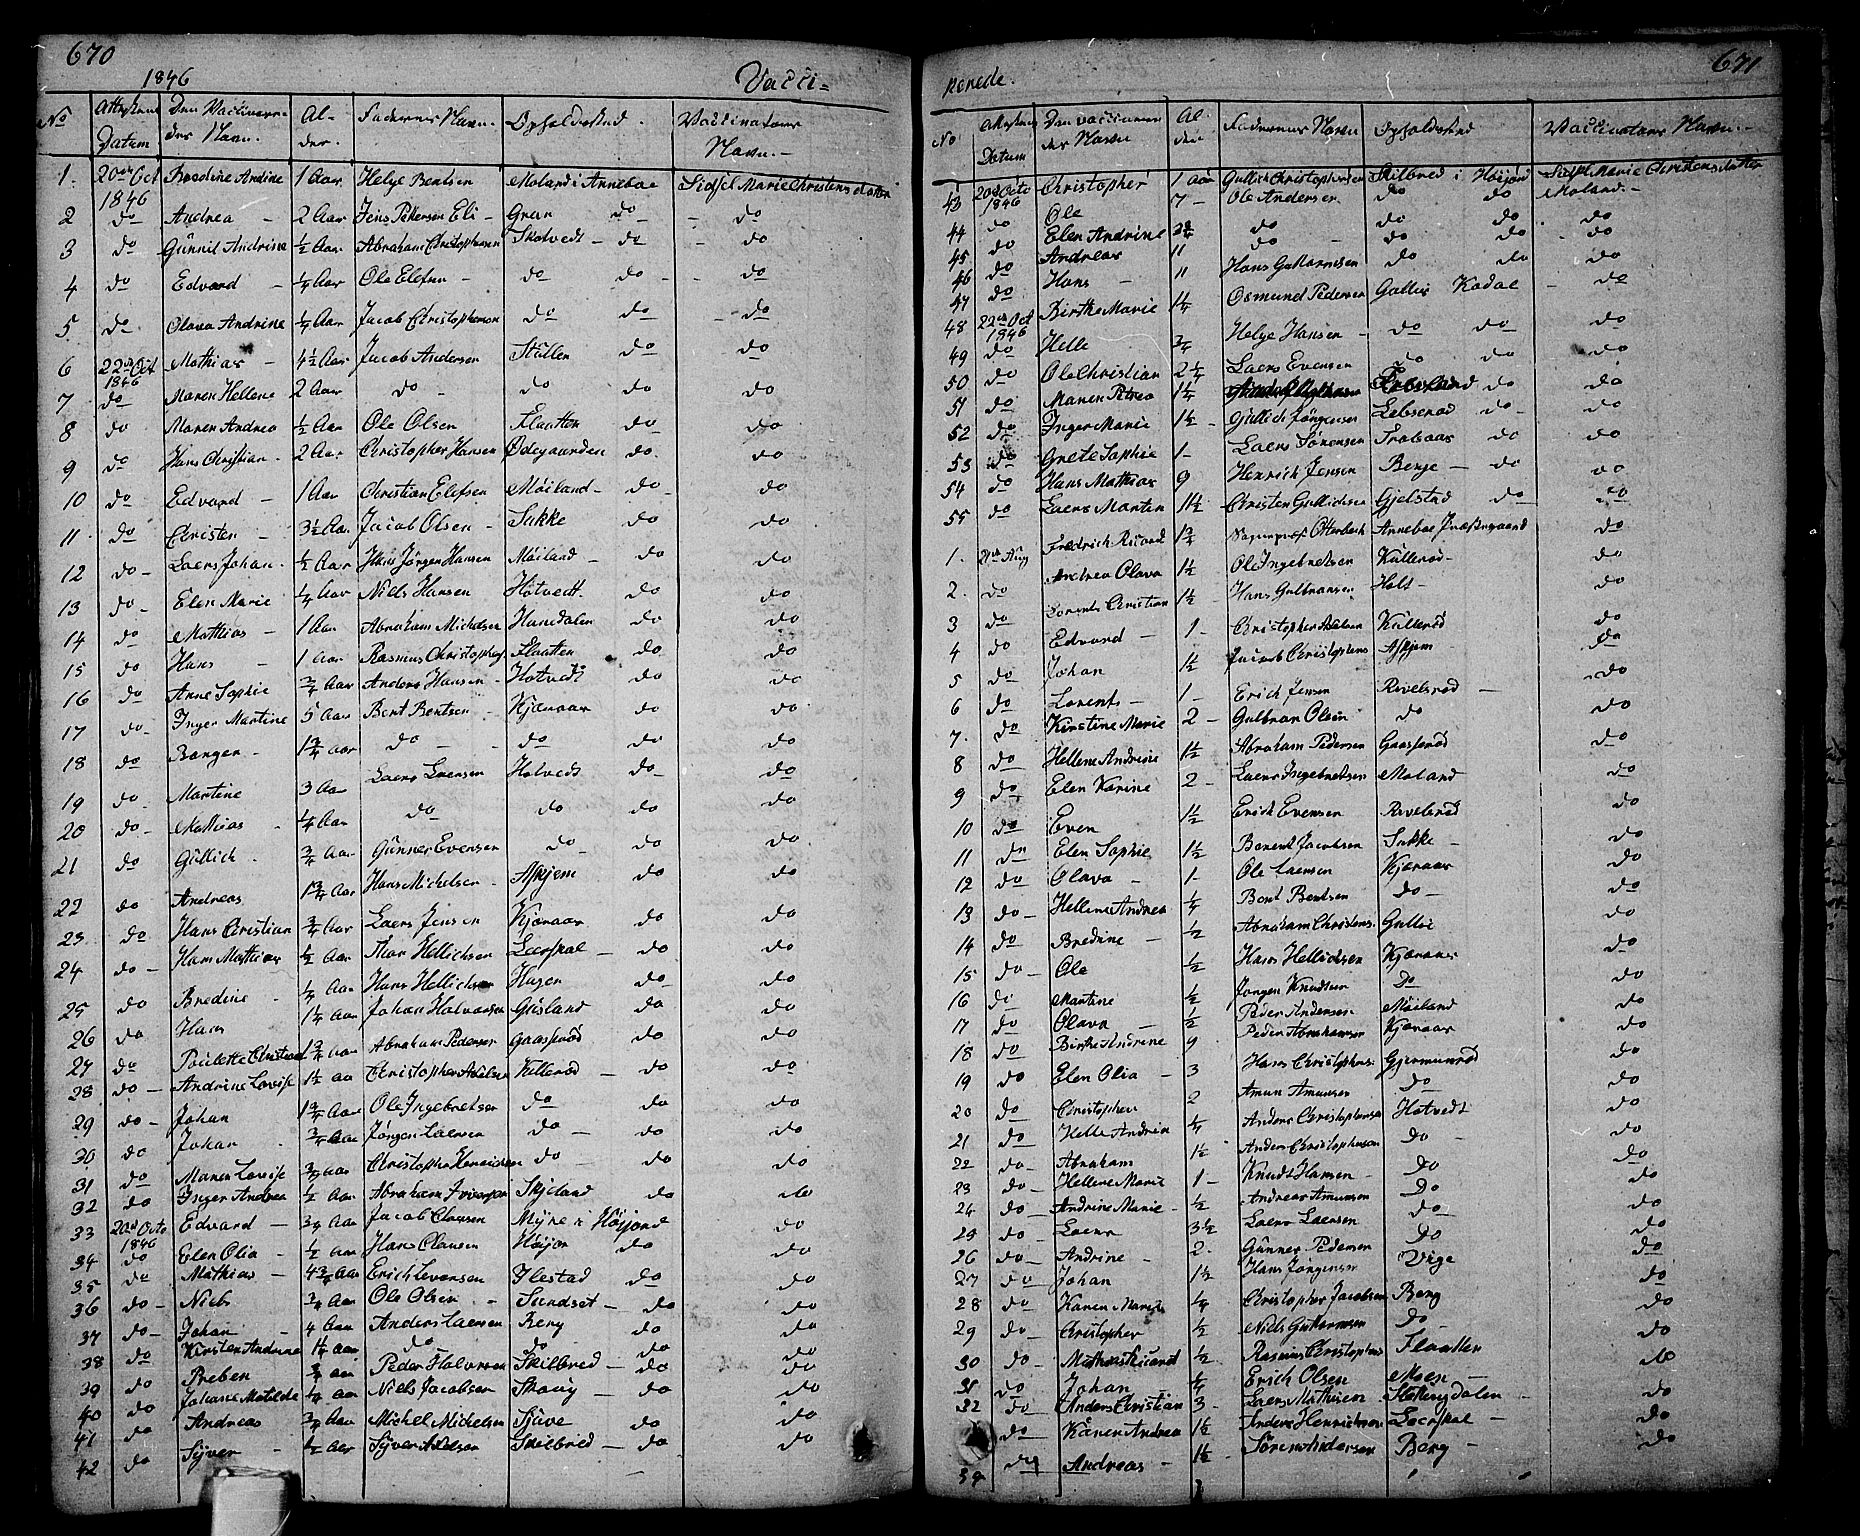 670
1846 Vacci-
No Attestens Datum Den Vaccinere- des Navn. Al- der. Faderens Navn. Opholdssted. Vaccinateurs Navn.-
1. 20de Oct 1846 Bredine Andine 1 Aar Helge Bentsen Moland i Anneboe Sidsel Marie Christensdatter
2 do Andrea - 2 Aar Jens Pettersen Eli- Gran do - do
3 do Günnil Andrine ½ Aar Abraham Christophersen Skotvedt - do - do
4 do Edvard - ¼ Aar Ole Elefsen - do do - - do
5 do Olava Andrine ¼ Aar Jacob Christophersen do do - do
6 22de Oct 1846 Mathias - 4½ Aar Jacob Andersen Stüllen do do
7 do Maren Hellene 2 Aar do - do do do
8 do Maren Andrea ½ Aar Ole Olsen Flaatten do do
9 do Hans Christian - 2 Aar Christopher Hansen Ødegaarden do do
10 do Edvard - 1 Aar Christian Elefsen Möiland - do do
11 do Christen - 3½ Aar Jacob Olsen - Sukke do do
12 do - Laers Johan - ½ Aar Hans Jörgen Hansen Möiland - do do
13 do - Elen Marie ¼ Aar Niels Hansen Hotvedt do do
14 do Mathias - 1 Aar Abraham Michelsen Hanedalen do do
15 do Hans - 1 Aar Rasmus Christophers Flaatten do do
16 do Anne Sophie ¾ Aar Anders Hansen - Hotvedt do do
17 do Inger Martine 5 Aar Bent Bentsen - Kjæraas do do
18 do Berger - 1¾ Aar do - - do do do
19 do Martine 3 Aar Laers Laersen Hotvedt do do
20 do - Mathias - ¼ Aar do do do do
21 do Güllich - ¾ Aar Günner Evensen do do do
22 do Andreas 1¾ Aar Hans Michelsen - Askjem do do
23 do Hans Christian ¾ Aar Laers Jensen Kjæraas do do
24 do - Hans Mathias ½ Aar Thor Hellichsen Leerskal - do do
25 do Bredine - ¼ Aar Hans Hellichsen Hagen do do
26 do Hans 1¼ Aar Johan Halvorsen Grisland do do
27 do Paulette Christine 1¾ Aar Abraham Pedersen Gaasserød do do
28 do - Andrine Lovise 1½ aa Christopher Adelsen Küllerød - do do
29 do - Johan 1¾ Aar Ole Ingebretsen do do do
30 do Johan - ¾ Aar Jörgen Laersen do - do do
31 do Maren Lovise ¾ aar Christopher Henrichsen do - do do
32 do Inger Andrea ½ Aar Abraham Iversen Skjeland do do
33 20de Octo 1846 Edvard - ¾ Aar Jacob Clausen Myre i Høijord do
34 do Elen Olia - ½ Aar Hans Clausen Høijor do do
35 do Mathias - 4¾ Aar Erich Levorsen Ilestad do do
36 do - Niels ¾ Aar Ole Olsen - Sundset - do do
37 do - Johan - 4 Aar Anders Laersen Berg do do
38 do Kirsten Andrine 1¼ Aar do do - do do
39 do Preben ¾ aar Peder Halvorsen Skilbred - do do
40 do Johane Matilde ¼ Aar Niels Jacobsen Skoug - do do
41 do Andreas ¾ Aar Michel Michelsen Sjüve do do
42 do Syver - ½ Aar Syver Adelsen Skilbred - do do
671
nerede.
No Attestens Datum Den vaccineren des Navn Al der Faderens Navn Opholdssted Vaccinateurs Navn.-
43 20de Octo 1846 Christopher 1 Aar Gullich Christophersen Skilbred i Høijord Sidsel Marie Christensdatter Moland -
44 do Ole 7 - Ole Andersen do do do
45 do Elen Andrine do do do - do
46 do Andreas 11 do - do do do
47 do Hans - 11 Hans Guttormsen do do do
48 22de Oct 1846 Birthe Marie 1¼ Osmund Pedersen Gallis Kodal - do
49 do Helle ¾ Helge Hansen - do do do
50 do Ole Christian 2¼ Laers Evensen do do do
51 do Maren Petrea 1¼ do do
52 do Inger Marie 1½ - Gullich Jörgensen Lebserød do - do
53 do Grete Sophie 1 - Laers Sørensen Trolsaas do do
54 do Hans Mathias 9 Henrich Jensen Berge - do do
55 do Laers Martin 1½ Christen Gullichsen Gjelstad do do
1. 21de Aug Fredrich Ricard 1¾ Sogneprest Otterbech Anneboe Præstegaard do
2. do Andrea Olava 1½ Ole Ingebretsen Küllerød - do
3 do Lorents Christian 1½ Hans Gulbransen Holt - do
4 do Edvard - 1 - Christopher Adelsen Küllerød do
5 do Johan 1½ Jacob Christophers Askjem do
6 do Lorents - 1 - Erich Jensen Rivelsrød - do
7. do Kirstine Marie 2 - Gulbran Olsen do do
8 do Hellene Andrine 1½ Abraham Pedersen Gaasserød do
9 do Elen Karine 2 - Laers Ingebretsen Moland do
10 do Even 1½ Erich Evensen Rivelsrød do
11 do Elen Sophie 1½ Berent Jacobsen Sukke - do
12 do Olava - 1 - Ole Laersen Kjæraas do
13 do - Hellene Andrea ¼ Bent Bentsen do - do
14 do Bredine - ½ Abraham Christens. Gulli do
15 do - Ole ½ Hans Hellichsen Kjæraas do
16 do Martine ½ Jörgen Knudsen Do do
17 do Olava - ½ Peder Andersen Möiland do
18 do Birthe Andrine 9 Peder Abrahamsen Kjæraas do
19 do Elen Olia - 3 Hans Christophers. Gjermundrød do
20 do Christopher 2 Amun Amunsen do do
21 do Helle Andrin ¼ Anders Christophersen Hotvedt do
22 do - Abraham 1½ Anders Christophersen do - do
23 do - Hellene Marie 1 - Knudt Hansen - do do
24 do - Andrine Marie - ½ Andreas Amunsen Do do
25 do - Laers 3½ Laers Laersen do - do
26 do - Andrine - 2. Günner Pedersen Do do
27 do Johan 1½ Hans Jörgensen Vige do
28 do Karen Marie ¼ Christopher Jacobsen Berg do
29 do - Christopher ½ Niels Guttormsen do - do
30 do - Mathias Ricard ½ Rasmus Christophers Flaatten do
31 do Johan ¼ Erich Olsen Moen - do
32 do - Anders Christian 3 - Laers Mathisen do
do - Karen Andrea 1½ Anders Henrichsen Leerskal - do
34 do Andreas - 1½ Sören Andersen Berg - do